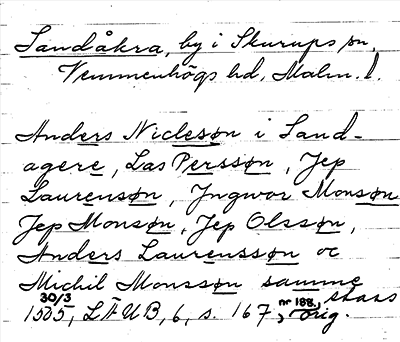 Sandåkra, by i Skurups sn,
Vemmenhögs hd, Malm. l.
Anders Nicleson i Sand-
agere, Las Persson, Jep
Laurenson, Jngwor Monson
Jep Monson, Jep Olsson,
Anders Laurensson oc
Michil Monsson samme
staas
30/3 nr 188,
1505, LÄUB, 6, s. 167, orig.